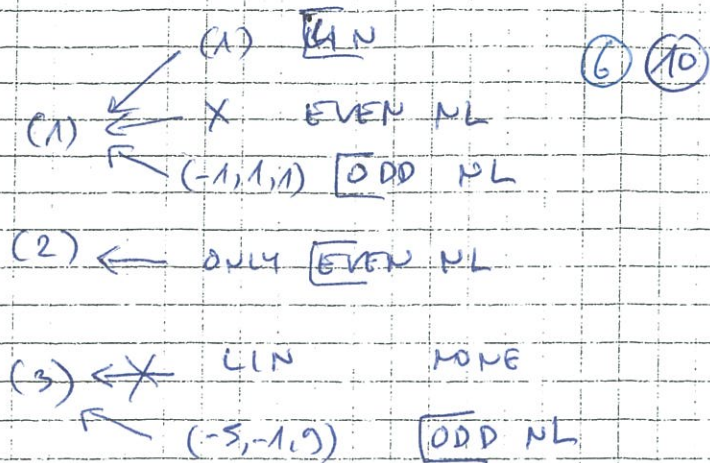 (1) LIN
6 10
(1) X EVEN NL
(-1,1,1) ODD NL
(2) ← ONLY EVEN NL
(3) ← LIN NONE
(-5,-1,9) ODD NL